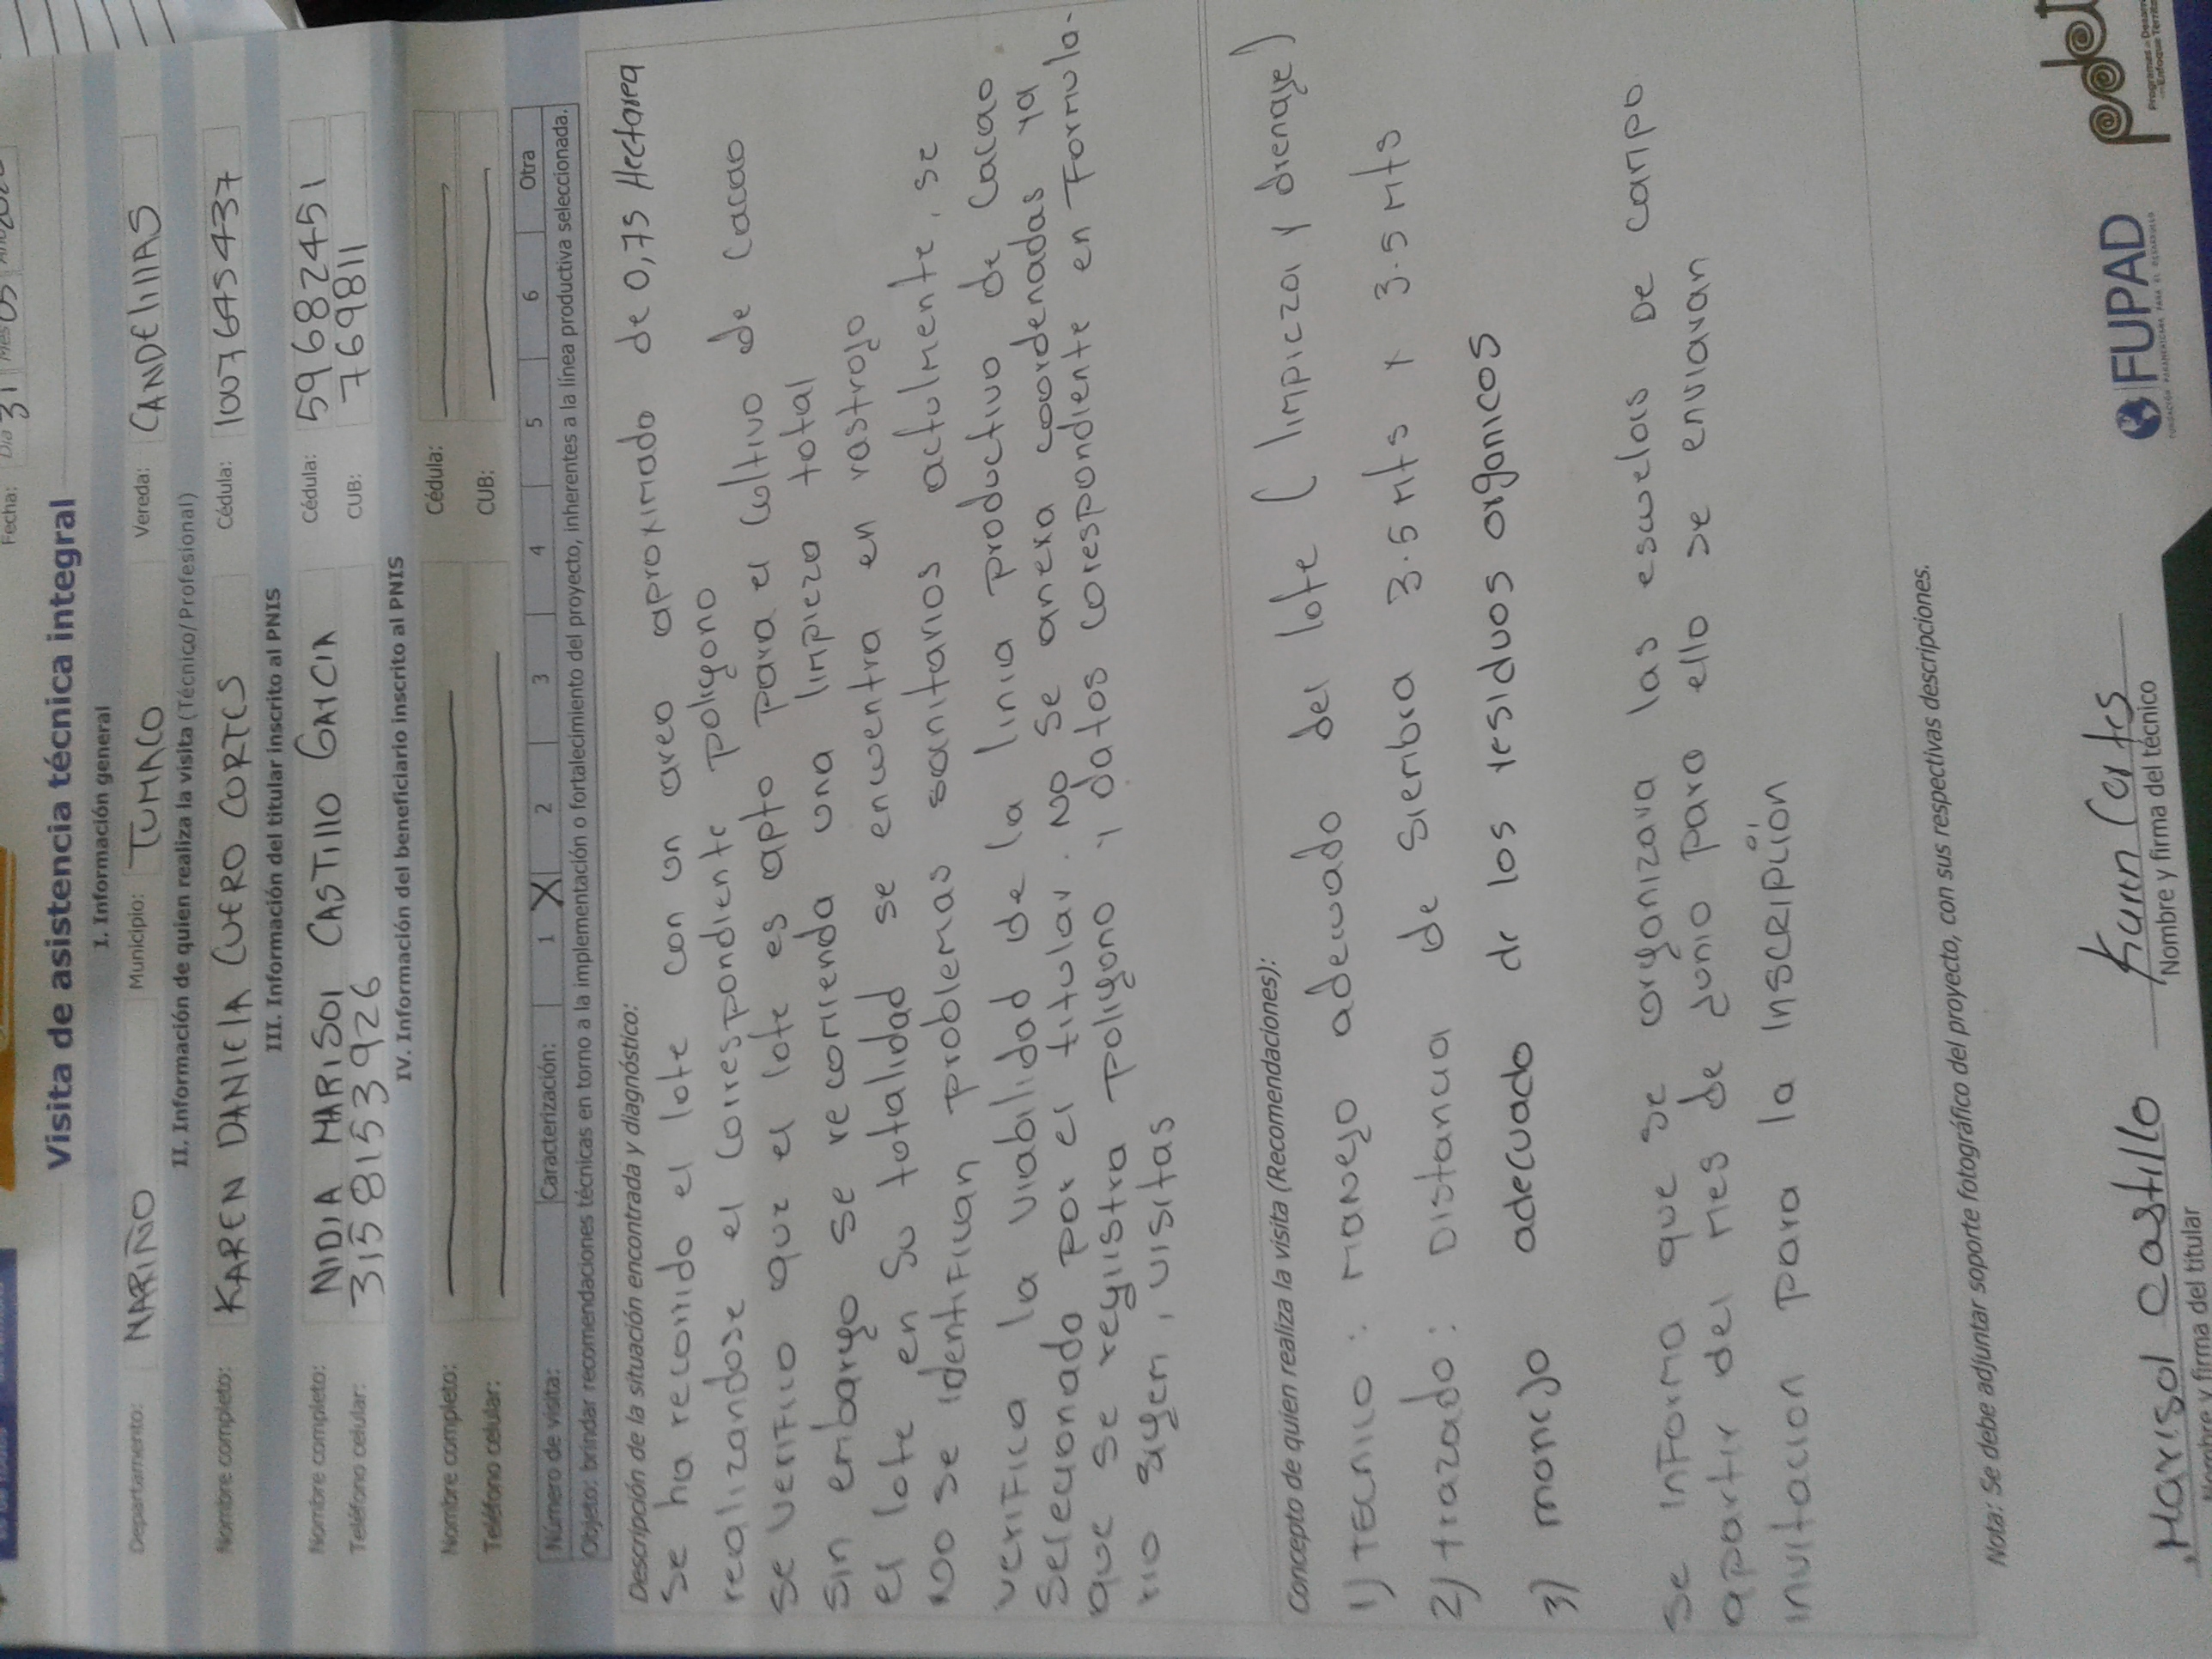 Fecha: Día 31 Mes 05
Visita de asistencia técnica integral
I. Información general
Departamento: NARIÑO Municipio: TUMACO Vereda: CANDElillAS
II. Información de quien realiza la visita (Técnico/Profesional)
Nombre completo: KAREN DANIELA CUERO CORTES Cédula: 1007645437
III. Información del titular inscrito al PNIS
Nombre completo: NIDIA MARISOl CASTIllO GARCIA Cédula: 59682451
Teléfono celular: 3158153926 CUB: 769811
IV. Información del beneficiario inscrito al PNIS
Nombre completo: Cédula:
Teléfono celular: CUB:
Número de visita: Caracterización: 1 X 2 3 4 5 6 Otra
Objeto: brindar recomendaciones técnicas en torno a la implementación o fortalecimiento del proyecto, inherentes a la línea productiva seleccionada.
Descripción de la situación encontrada y diagnóstico:
Se ha recorrido el lote con un area aproximado de 0,75 Hectarea
realizandose el correspondiente poligono
Se verifico que el lote es apto para el coltivo de cacao
Sin embargo se recomienda una limpieza total
el lote en su totalidad se encuentra en rastrojo
No se identifican problemas sanitarios actulmente, se
verifica la viabilidad de la linia productivo de cacao
Selecionado por el titular. No se anexa coordenadas ya
que se regiistra poligono y datos corespondiente en Formula-
rio sigem, visitas
Concepto de quien realiza la visita (Recomendaciones):
1) TECNICO: Manejo adecuado del lote (limpieza y drenaje)
2) trazado: Distancia de siembra 3.5 mts x 3.5 mts
3) manejo adecuado de los residuos organicos
Se informa que se organizara las escuelas De campo
apartir del mes de junio para ello se enviaran
invitacion para la inscripción
Nota: Se debe adjuntar soporte fotográfico del proyecto, con sus respectivas descripciones.
Marisol Castillo Karen Cortes
Nombre y firma del titular Nombre y firma del técnico
FUPAD
FUNDACIÓN PANAMERICANA PARA EL DESARROLLO
pdet
Programas de Desarrollo
Enfoque Territorial